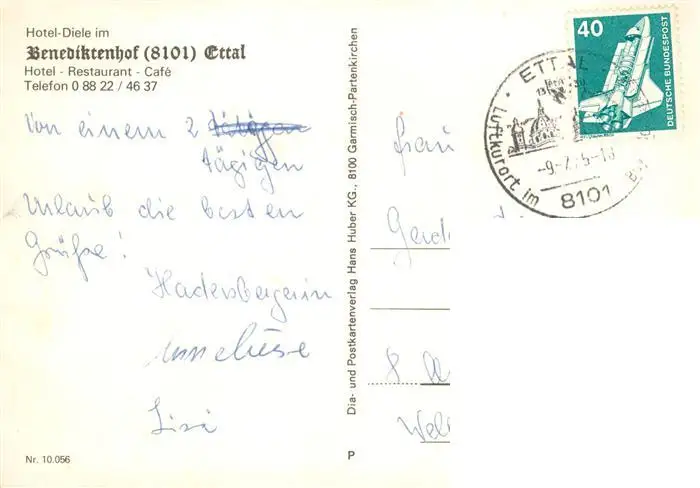 Hotel-Diele im
Benediktenhof (8101) Ettal
Hotel - Restaurant - Café
Telefon 0 88 22 / 46 37
Von einem 2
tägigen
Urlaub die besten
Grüße!
Lisi
Nr. 10.056
Dia- und Postkartenverlag Hans Huber KG., 8100 Garmisch-Partenkirchen
P
40
DEUTSCHE BUNDESPOST
ETTAL
Luftkurort im
8101
Frau
Gerd
8